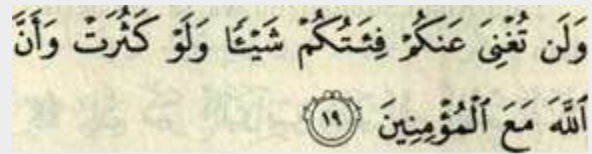 وَلَن تُغْنِىَ عَنكُمْ فِئَتُكُمْ شَيْـًٔا وَلَوْ كَثُرَتْ وَأَنَّ
ٱللَّهَ مَعَ ٱلْمُؤْمِنِينَ ١٩